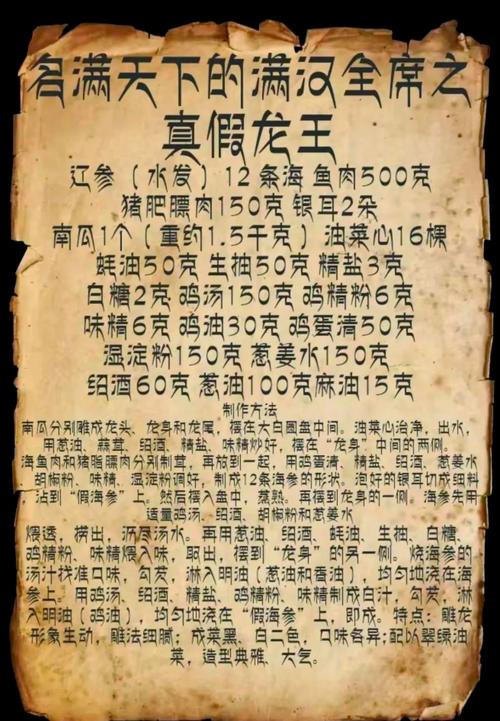 名满天下的满汉全席之
真假龙王
辽参（水发）12条海 鱼肉500克
猪肥膘肉150克 银耳2朵
南瓜1个（重约1.5千克）油菜心16棵
蚝油50克 生抽50克 精盐3克
白糖2克 鸡汤150克 鸡精粉6克
味精6克 鸡油30克 鸡蛋清50克
湿淀粉150克 葱姜水150克
绍酒60克 葱油100克麻油15克
制作方法
南瓜分别雕成龙头、龙身和龙尾，摆在大白圆盘中间。油菜心治净，出水，
用葱油、蒜茸、绍酒、精盐、味精炒好，摆在“龙身”中间的两侧。
海鱼肉和猪脂膘肉分别制茸，再放到一起，用鸡蛋清、精盐、绍酒、葱姜水
胡椒粉、味精、湿淀粉调好，制成12条海参的形状。泡好的银耳切成细料
沾到“假海参”上。然后摆入盘中，蒸熟。再摆到龙身的一侧。海参先用
适量鸡汤、绍酒、胡椒粉和葱姜水
煨透，捞出，沥尽汤水。再用葱油、绍酒、蚝油、生抽、白糖、
鸡精粉、味精煨入味，取出，摆到“龙身”的另一侧。烧海参的
汤汁找准口味，勾芡，淋入明油（葱油和香油），均匀地浇在海
参上。用鸡汤、绍酒、精盐、鸡精粉、味精制成白汁，勾芡，淋
入明油（鸡油），均匀地浇在“假海参”上，即成。特点：雕龙
形象生动，雕法细腻；成菜黑、白二色，口味各异；配以翠绿油
菜，造型典雅、大气。